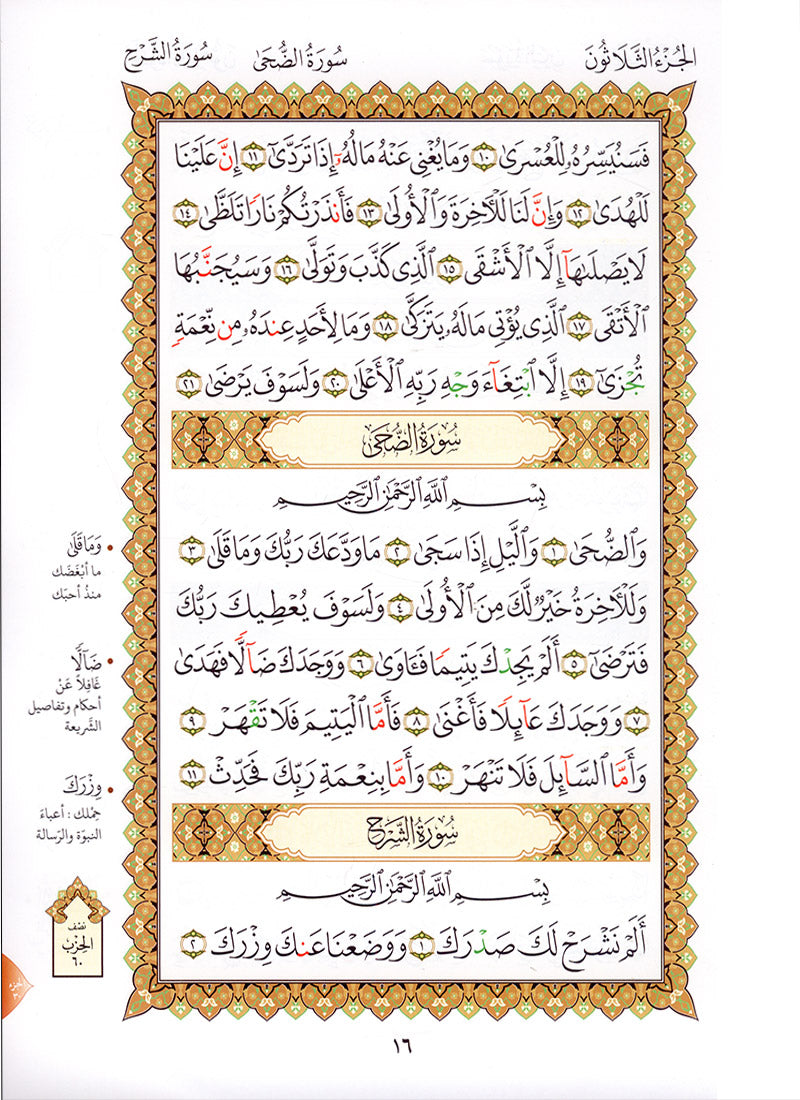 الجُزْءُ الثَّلَاثُونَ
سُورَةُ الضُّحَىٰ
سُورَةُ الشَّرْحِ
فَسَنُيَسِّرُهُۥ لِلْعُسْرَىٰ ١٠ وَمَا يُغْنِى عَنْهُ مَالُهُۥٓ إِذَا تَرَدَّىٰٓ ١١ إِنَّ عَلَيْنَا
لَلْهُدَىٰ ١٢ وَإِنَّ لَنَا لَلْءَاخِرَةَ وَٱلْأُولَىٰ ١٣ فَأَنذَرْتُكُمْ نَارًا تَلَظَّىٰ ١٤
لَا يَصْلَىٰهَآ إِلَّا ٱلْأَشْقَى ١٥ ٱلَّذِى كَذَّبَ وَتَوَلَّىٰ ١٦ وَسَيُجَنَّبُهَا
ٱلْأَتْقَى ١٧ ٱلَّذِى يُؤْتِى مَالَهُۥ يَتَزَكَّىٰ ١٨ وَمَا لِأَحَدٍ عِندَهُۥ مِن نِّعْمَةٍ
تُجْزَىٰٓ ١٩ إِلَّا ٱبْتِغَآءَ وَجْهِ رَبِّهِ ٱلْأَعْلَىٰ ٢٠ وَلَسَوْفَ يَرْضَىٰ ٢١
سُورَةُ الضُّحَىٰ
بِسْمِ ٱللَّهِ ٱلرَّحْمَٰنِ ٱلرَّحِيمِ
وَٱلضُّحَىٰ ١ وَٱلَّيْلِ إِذَا سَجَىٰ ٢ مَا وَدَّعَكَ رَبُّكَ وَمَا قَلَىٰ ٣
وَلَلْءَاخِرَةُ خَيْرٌ لَّكَ مِنَ ٱلْأُولَىٰ ٤ وَلَسَوْفَ يُعْطِيكَ رَبُّكَ
فَتَرْضَىٰٓ ٥ أَلَمْ يَجِدْكَ يَتِيمًا فَـَٔاوَىٰ ٦ وَوَجَدَكَ ضَآلًّا فَهَدَىٰ
٧ وَوَجَدَكَ عَآئِلًا فَأَغْنَىٰ ٨ فَأَمَّا ٱلْيَتِيمَ فَلَا تَقْهَرْ ٩
وَأَمَّا ٱلسَّآئِلَ فَلَا تَنْهَرْ ١٠ وَأَمَّا بِنِعْمَةِ رَبِّكَ فَحَدِّثْ ١١
سُورَةُ الشَّرْحِ
بِسْمِ ٱللَّهِ ٱلرَّحْمَٰنِ ٱلرَّحِيمِ
أَلَمْ نَشْرَحْ لَكَ صَدْرَكَ ١ وَوَضَعْنَا عَنكَ وِزْرَكَ ٢
وَمَا قَلَىٰ
ما أبْغَضَك
منذُ أحبّك
ضَآلًّا
غَافِلاً عَنْ
أحكام وتفاصيل
الشَّريعة
وِزْرَكَ
حِمْلك : أعباءَ
النبوّة والرّسالة
نصْف
الحِزْب
٦٠
الجزء
١٦